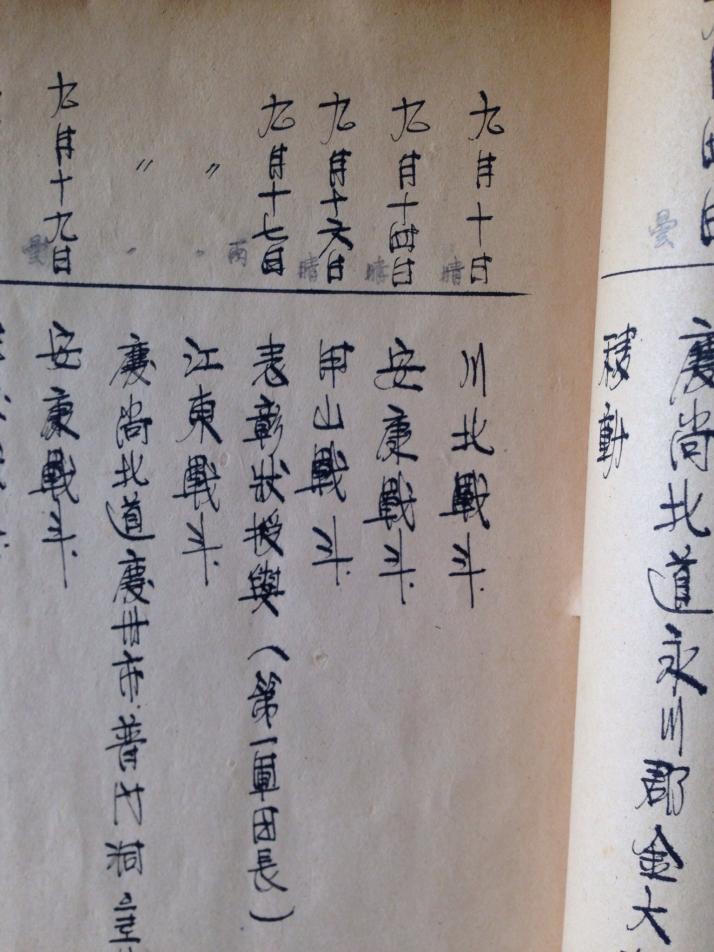 曇
慶尚北道永川郡金大
移動
九月十日 晴
川北戰斗
九月十四日 晴
安康戰斗
九月十六日 晴
甲山戰斗
九月十七日 雨
表彰狀授與（第一軍団長）
〃 〃
江東戰斗
〃 〃
慶尚北道慶州市普门洞
九月十九日 曇
安康戰斗